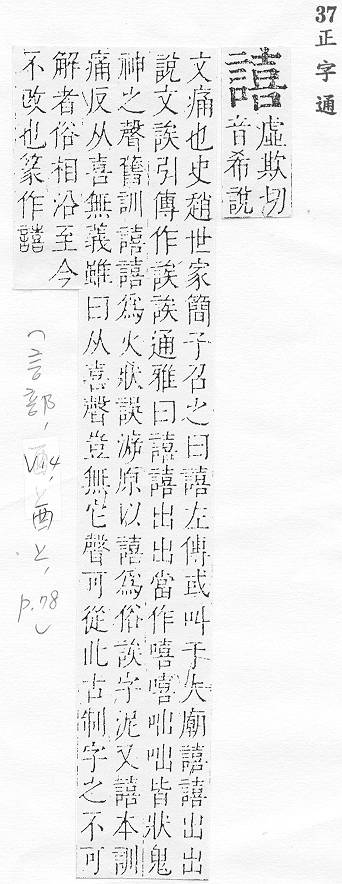 37正字通
譆
虛欺切
音希說
文痛也史趙世家簡子召之曰譆左傳或叫于大廟譆譆出出
說文誒引傳作誒誒通雅曰譆譆出出當作嘻嘻咄咄皆狀鬼
神之聲舊訓譆譆爲火狀誤游原以譆爲俗誒字泥又譆本訓
痛反从喜無義雖曰从喜聲豈無它聲可從此古制字之不可
解者俗相沿至今
不改也篆作譆
(言部,
酉上,
p.78)